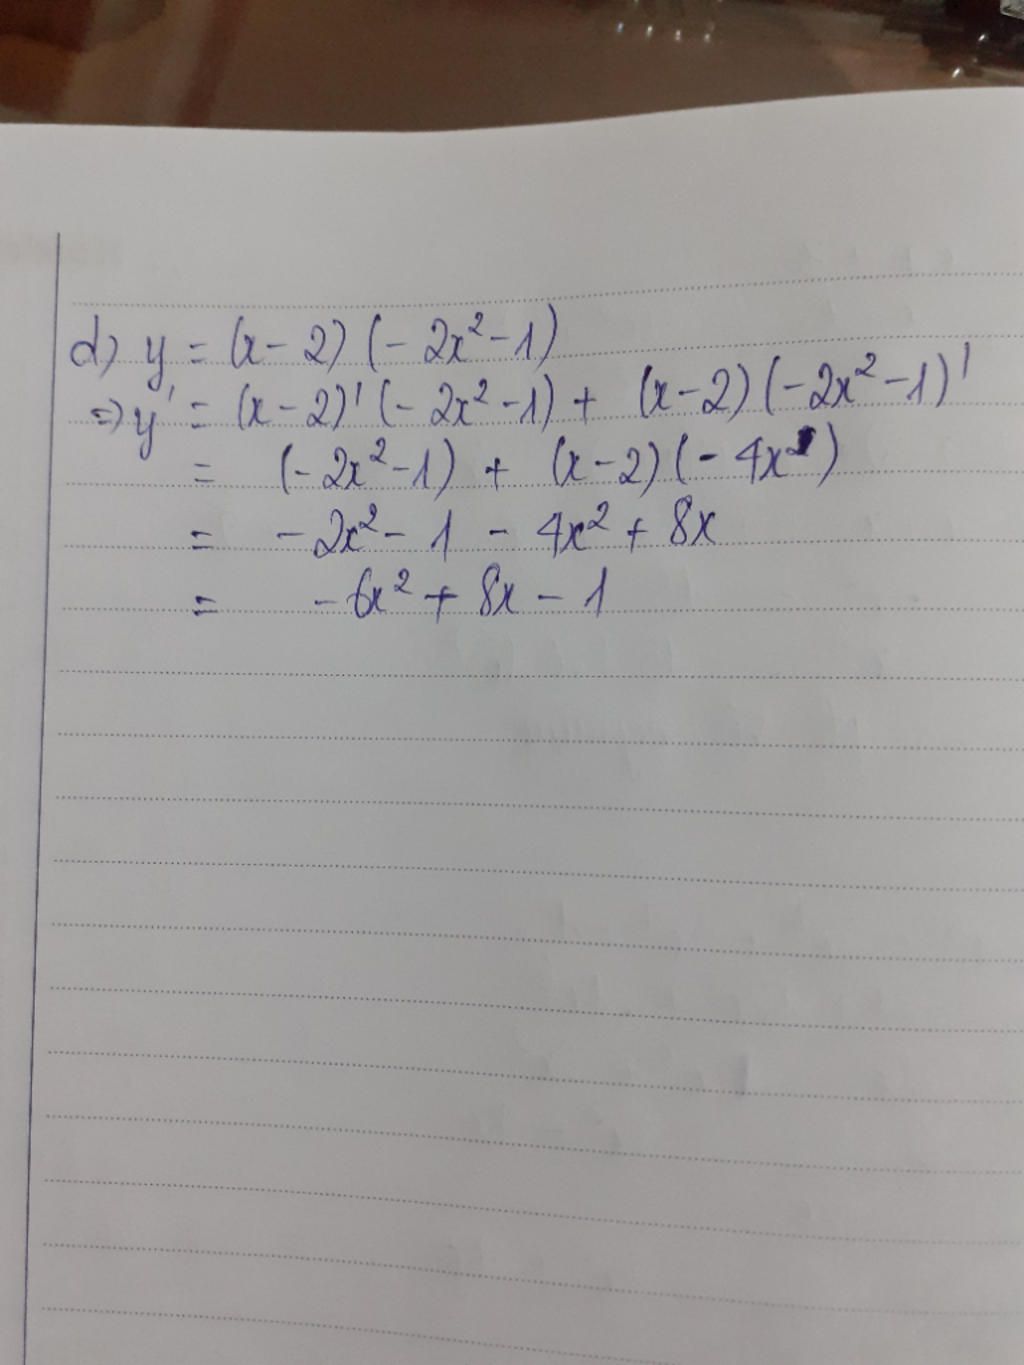 d) y = (x - 2) (- 2x² - 1)
=> y' = (x - 2)' (- 2x² - 1) + (x - 2) (- 2x² - 1)'
= (- 2x² - 1) + (x - 2) (- 4x)
= - 2x² - 1 - 4x² + 8x
= - 6x² + 8x - 1